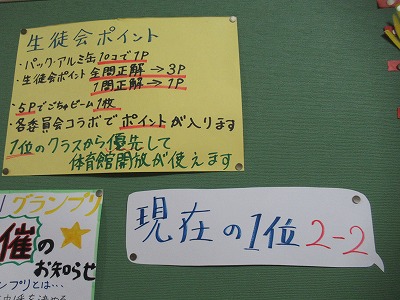 生徒会ポイント
・パック・アルミ缶10コで1P
・生徒会ポイント 全問正解→3P
1問正解→1P
・5Pでごちゃビーム1枚
・各委員会コラボでポイントが入ります
1位のクラスから優先して
体育館開放が使えます
グランプリ
催の
お知らせ
ンプリとは…
現在の1位 2-2